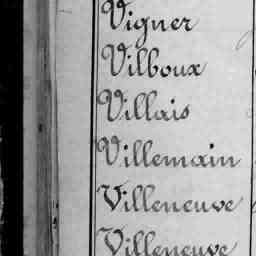 Vigner
Vilboux
Villais
Villemain
Villeneuve
Villeneuve